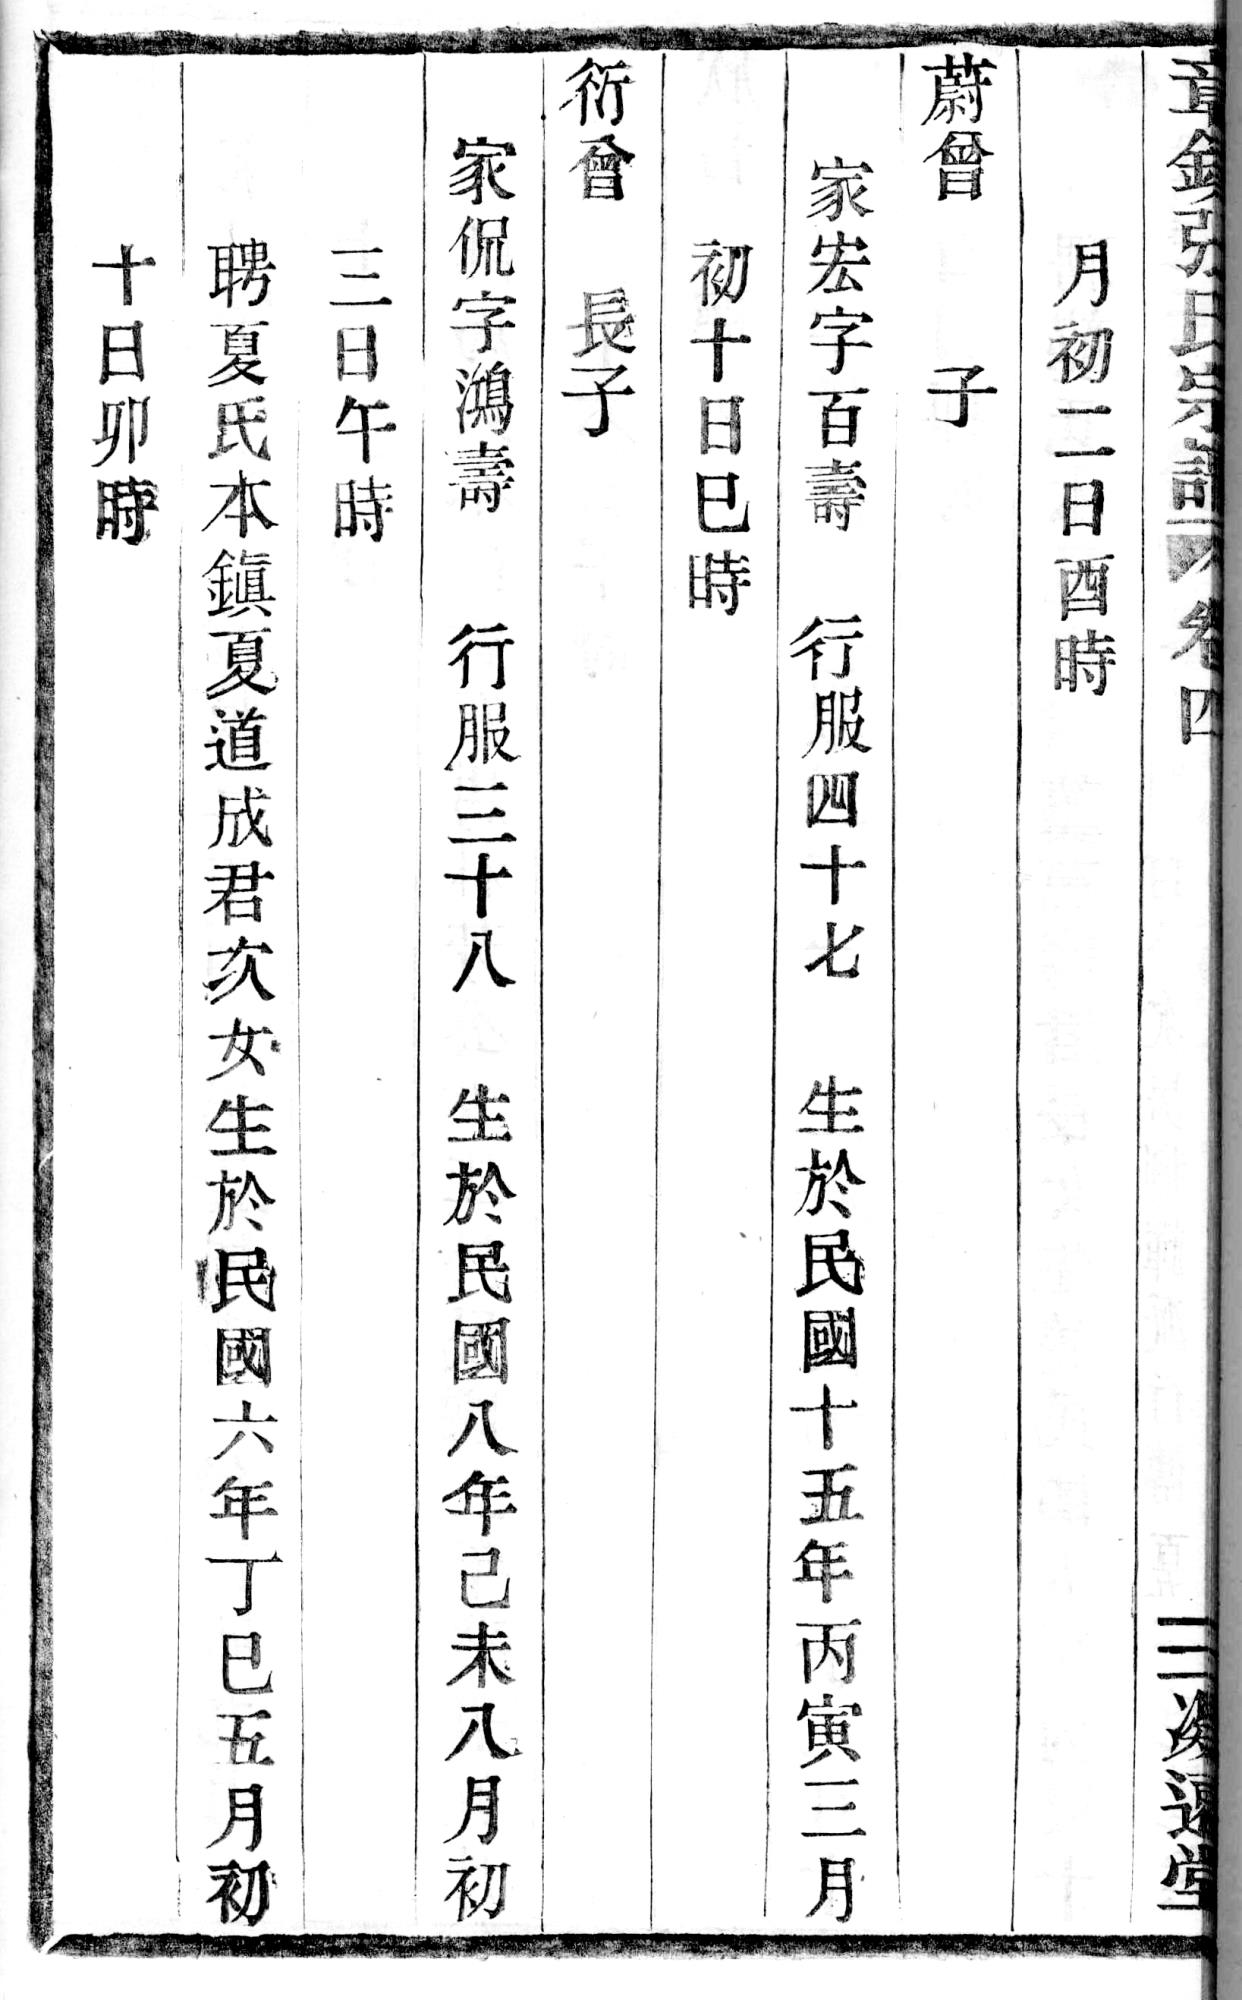 章鎮張氏宗譜 卷四 二 遠堂
月初二日酉時
蔚曾 子
家宏字百壽 行服四十七 生於民國十五年丙寅三月
初十日巳時
衍曾 長子
家侃字鴻壽 行服三十八 生於民國八年己未八月初
三日午時
聘夏氏本鎮夏道成君次女生於民國六年丁巳五月初
十日卯時